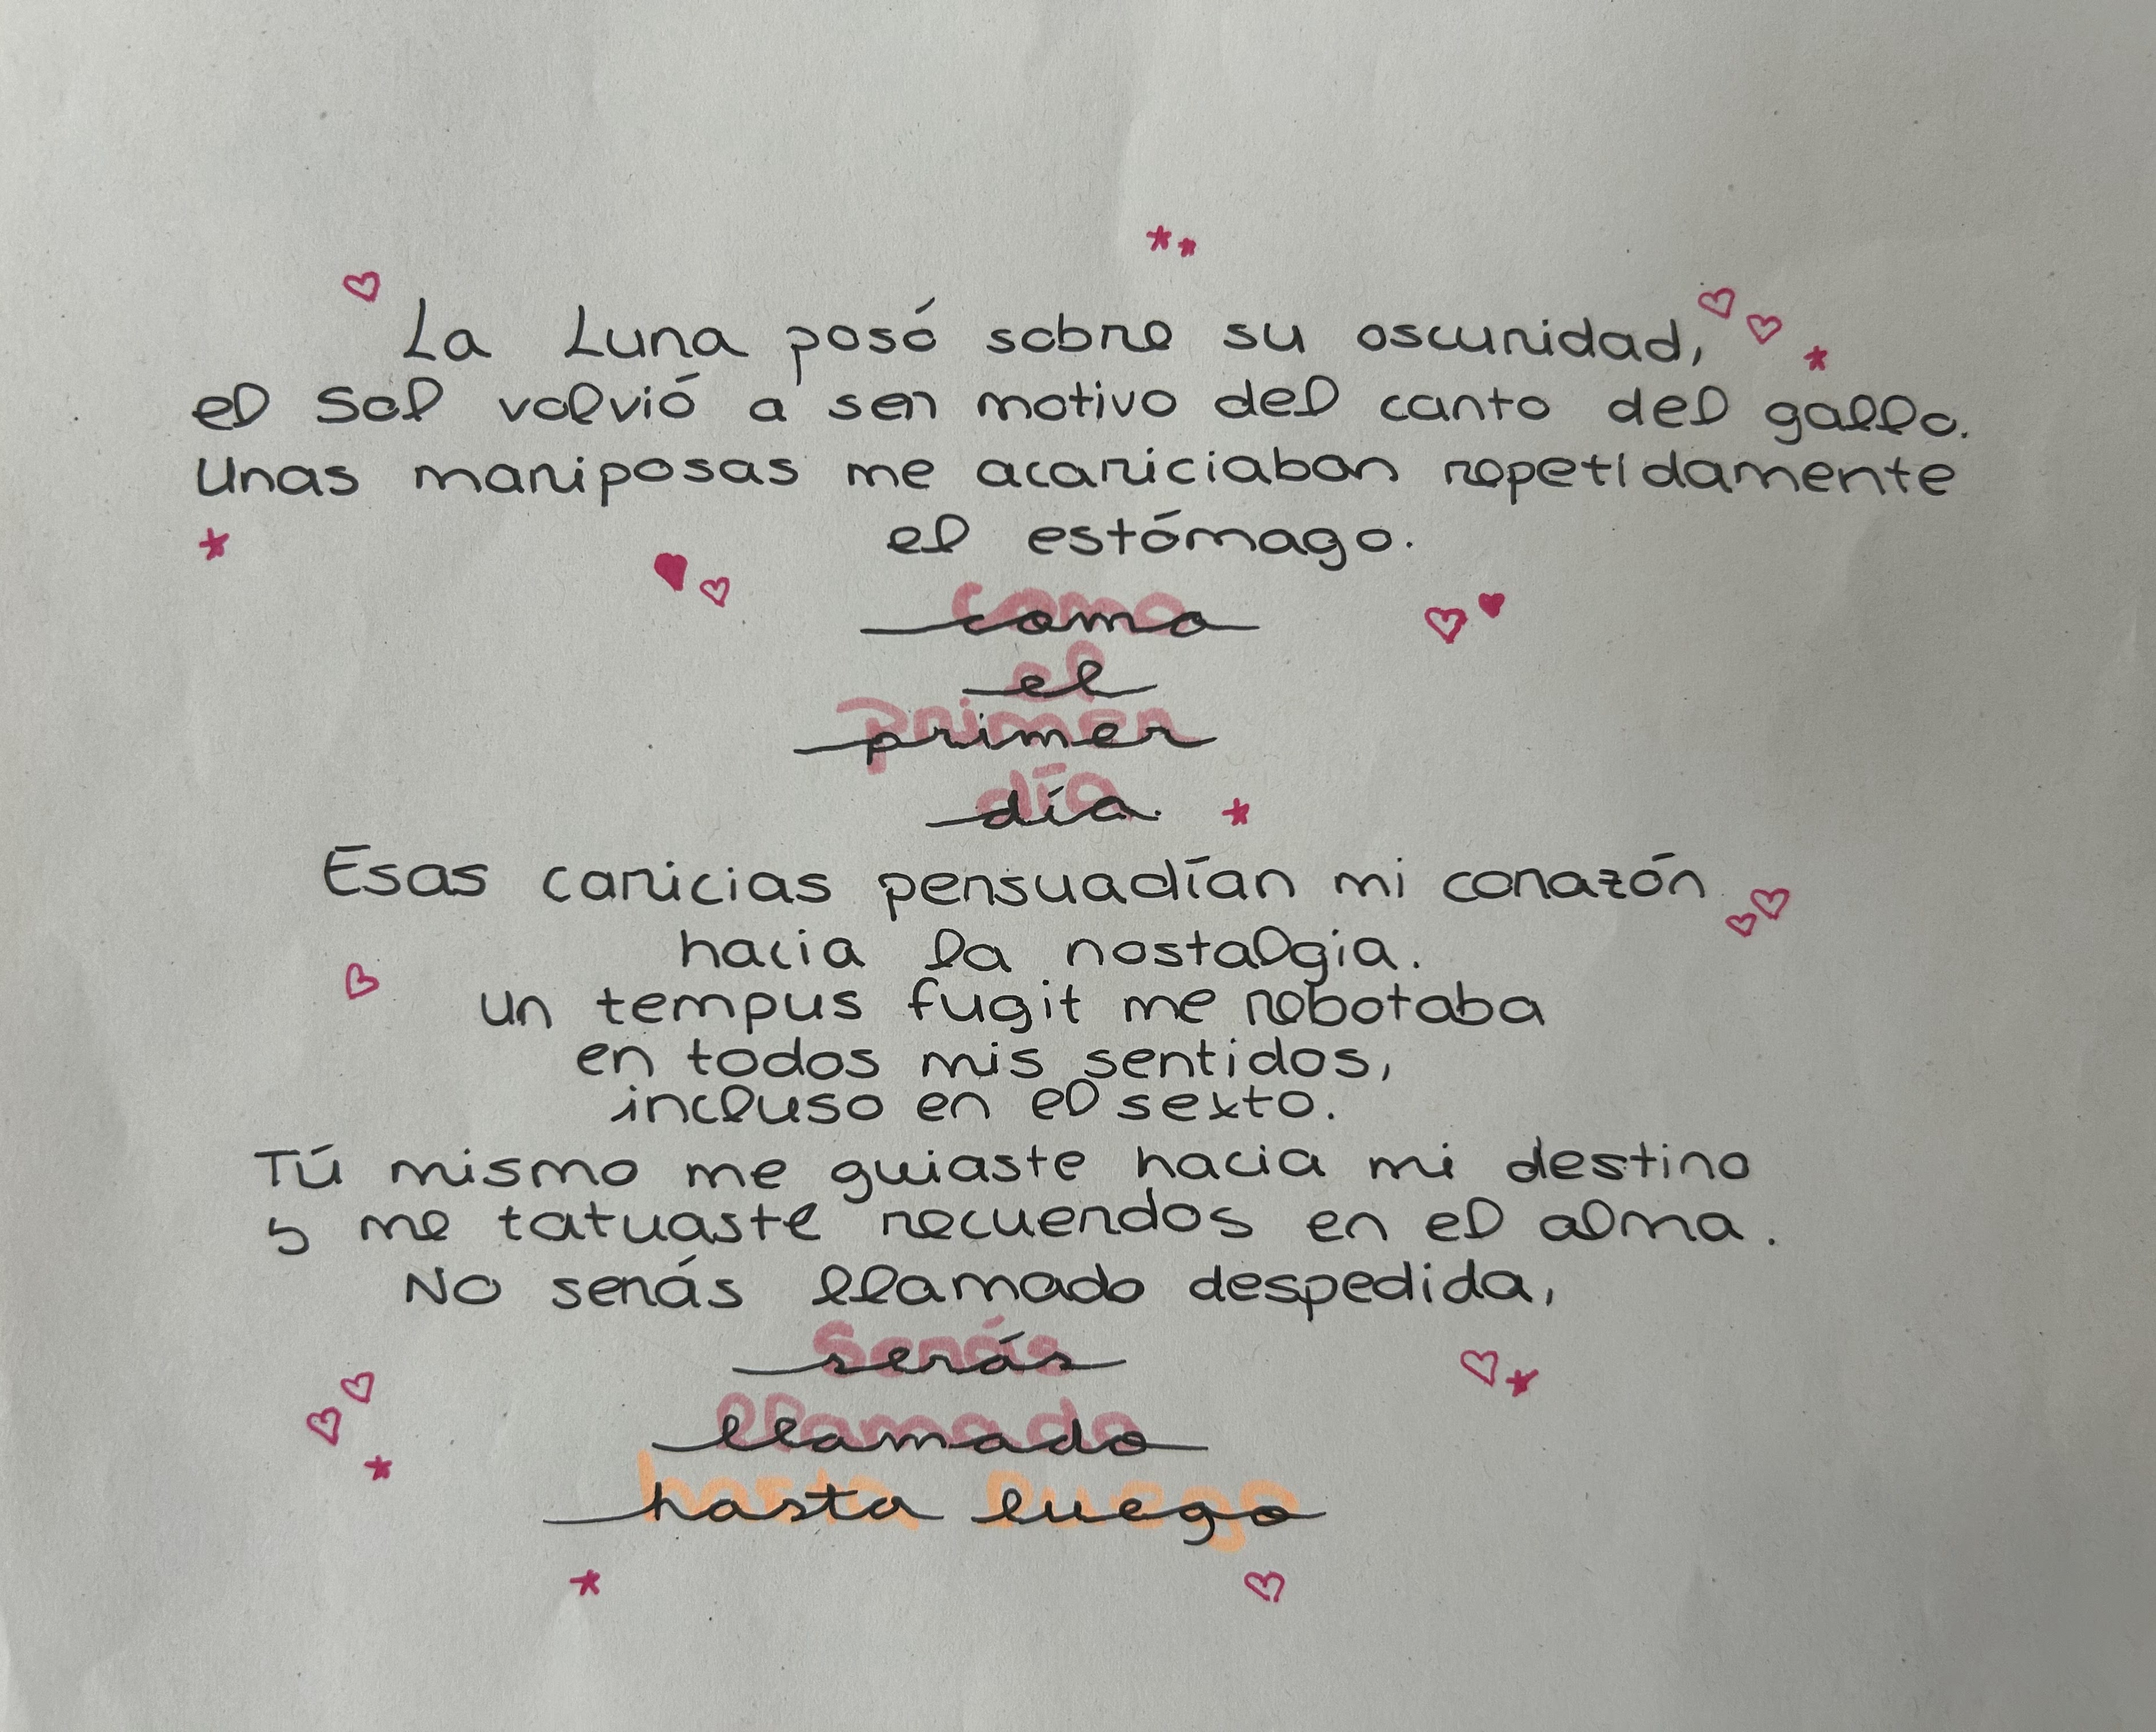 La Luna posó sobre su oscuridad,
el Sol volvió a ser motivo del canto del gallo.
Unas mariposas me acariciaban repetidamente
el estómago.
como
el
primer
día.
Esas caricias persuadían mi corazón
hacia la nostalgia.
un tempus fugit me rebotaba
en todos mis sentidos,
incluso en el sexto.
Tú mismo me guiaste hacia mi destino
y me tatuaste recuerdos en el alma.
No serás llamado despedida,
serás
llamado
hasta luego